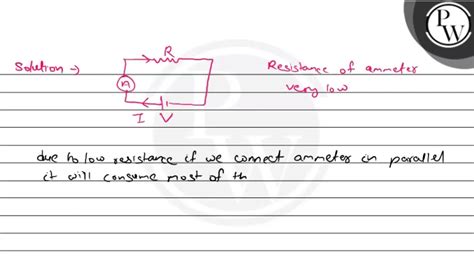 P
W
R
Solution →
Resistance of ammeter
very low
A
I V
P
W
due to low resistance if we connect ammeter in parallel
it will consume most of th